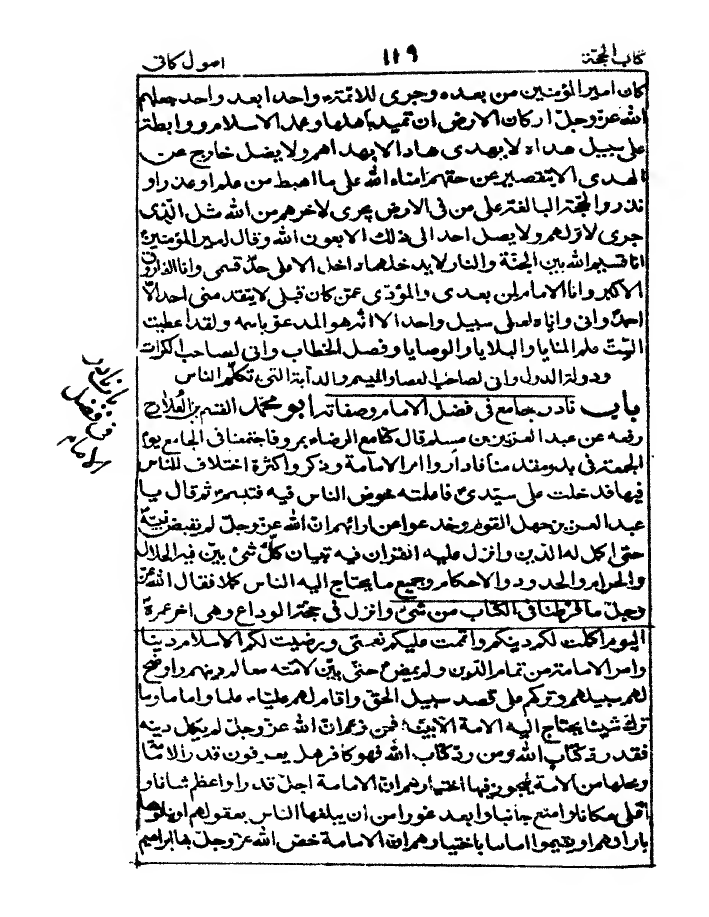 كتاب الحجّة
١١٩
اصول كافى
كان امير المؤمنين من بعده وجرى للائمة واحدا بعد واحد جعلهم
الله عزّ وجلّ اركان الارض ان تميد باهلها وعمد الاسلام ورابطة
على سبيل هداه لا يهتدى هاد الا بهداهم ولا يضل خارج عن
الهدى الا بتقصير عن حقهم امناء الله على ما اهبط من علم او عذر او
نذر والحجّة البالغة على من فى الارض يجرى لاخرهم من الله مثل الّذى
جرى لاولهم ولا يصل احد الى ذلك الا بعون الله وقال امير المؤمنين
انا قسيم الله بين الجنّة والنار لا يدخلها داخل الا على حدّ قسمى وانا الفاروق
الاكبر وانا الامام لمن بعدى والمؤدّى عمّن كان قبلى لا يتقدمنى احد الّا
احمد وانى واياه لعلى سبيل واحد الا انّه هو المدعوّ باسمه ولقد اعطيت
الستّ علم المنايا والبلايا والوصايا وفصل الخطاب وانى لصاحب الكرات
ودولة الدول وانى لصاحب العصا والميسم والدابّة التى تكلّم الناس
باب نادر جامع فى فضل الامام وصفاته ابو محمّد القسم بن العلاء
رفعه عن عبد العزيز بن مسلم قال كنّا مع الرضا بمرو فاجتمعنا فى الجامع يوم
الجمعة فى بدو مقدمنا فاداروا امر الامامة وذكروا كثرة اختلاف الناس
فيها فدخلت على سيّدى فاعلمته خوض الناس فيه فتبسم ثم قال يا
عبد العزيز جهل القوم وخدعوا عن ارائهم انّ الله عزّ وجلّ لم يقبض نبيّه
حتى اكمل له الدين وانزل عليه القران فيه تبيان كلّ شئ بيّن فيه الحلال
والحرام والحدود والاحكام وجميع ما يحتاج اليه الناس كملا فقال الله عزّ
وجلّ ما فرّطنا فى الكتاب من شئ وانزل فى حجّة الوداع وهى اخر عمره
اليوم اكملت لكم دينكم واتممت عليكم نعمتى ورضيت لكم الاسلام دينا
وامر الامامة من تمام الدين ولم يمض حتّى بيّن لامته معالم دينهم واوضح
لهم سبيلهم وتركهم على قصد سبيل الحق واقام لهم عليّا علما واماما وما
ترك شيئا يحتاج اليه الامة الا بيّنه فمن زعم انّ الله عزّ وجلّ لم يكمل دينه
فقد ردّ كتاب الله ومن ردّ كتاب الله فهو كافر هل يعرفون قدر الامامة
ومحلها من الامة فيجوز فيها اختيارهم انّ الامامة اجلّ قدرا واعظم شانا و
اعلى مكانا وامنع جانبا وابعد غورا من ان يبلغها الناس بعقولهم او ينالوها
بارائهم او يقيموا اماما باختيارهم انّ الامامة خصّ الله عزّ وجلّ بها ابراهيم
باب نادر
فى فضل
الامام